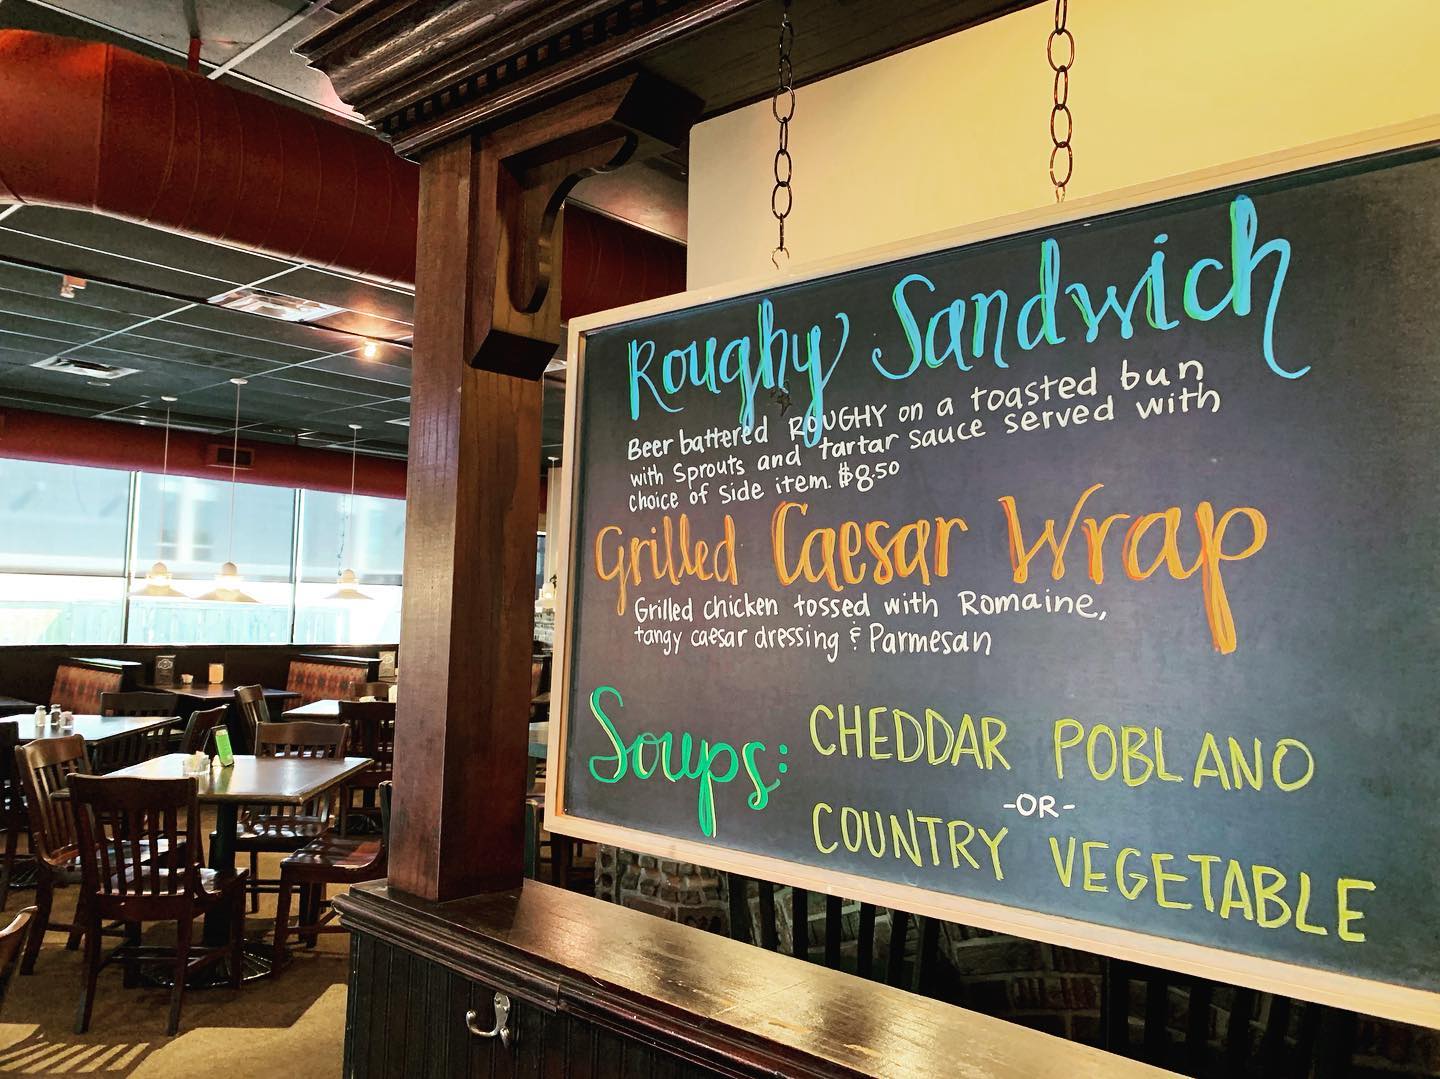 Roughy Sandwich
Beer battered ROUGHY on a toasted bun
with Sprouts and tartar sauce served with
choice of side item. $8.50
Grilled Caesar Wrap
Grilled chicken tossed with Romaine,
tangy caesar dressing & Parmesan
Soups: CHEDDAR POBLANO
-OR-
COUNTRY VEGETABLE